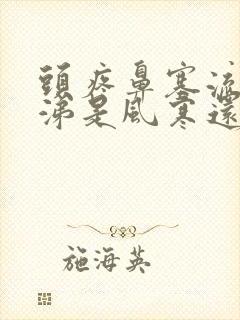 頭疼鼻塞流
涕是風寒還
施海英